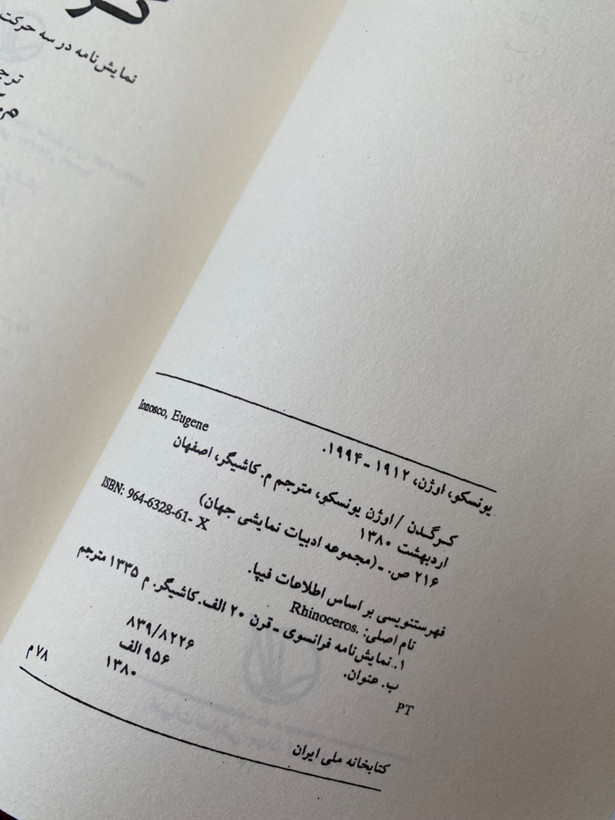 نمایش‌نامه در سه حرکت
یونسکو، اوژن، ۱۹۱۲ ـ ۱۹۹۴.
Ionosco, Eugene
کرگدن / اوژن یونسکو، مترجم م. کاشیگر، اصفهان
اردیبهشت ۱۳۸۰
۲۱۶ ص. ـ (مجموعه ادبیات نمایشی جهان)
ISBN: 964-6328-61- X
فهرستنویسی بر اساس اطلاعات فیپا.
نام اصلی: Rhinoceros.
۱. نمایش‌نامه فرانسوی ـ قرن ۲۰ الف. کاشیگر. م ۱۳۳۵ مترجم
ب. عنوان.
PT
۸۳۹/۸۲۲۶
۹۵۶ الف
۱۳۸۰
۷۸ م
کتابخانه ملی ایران